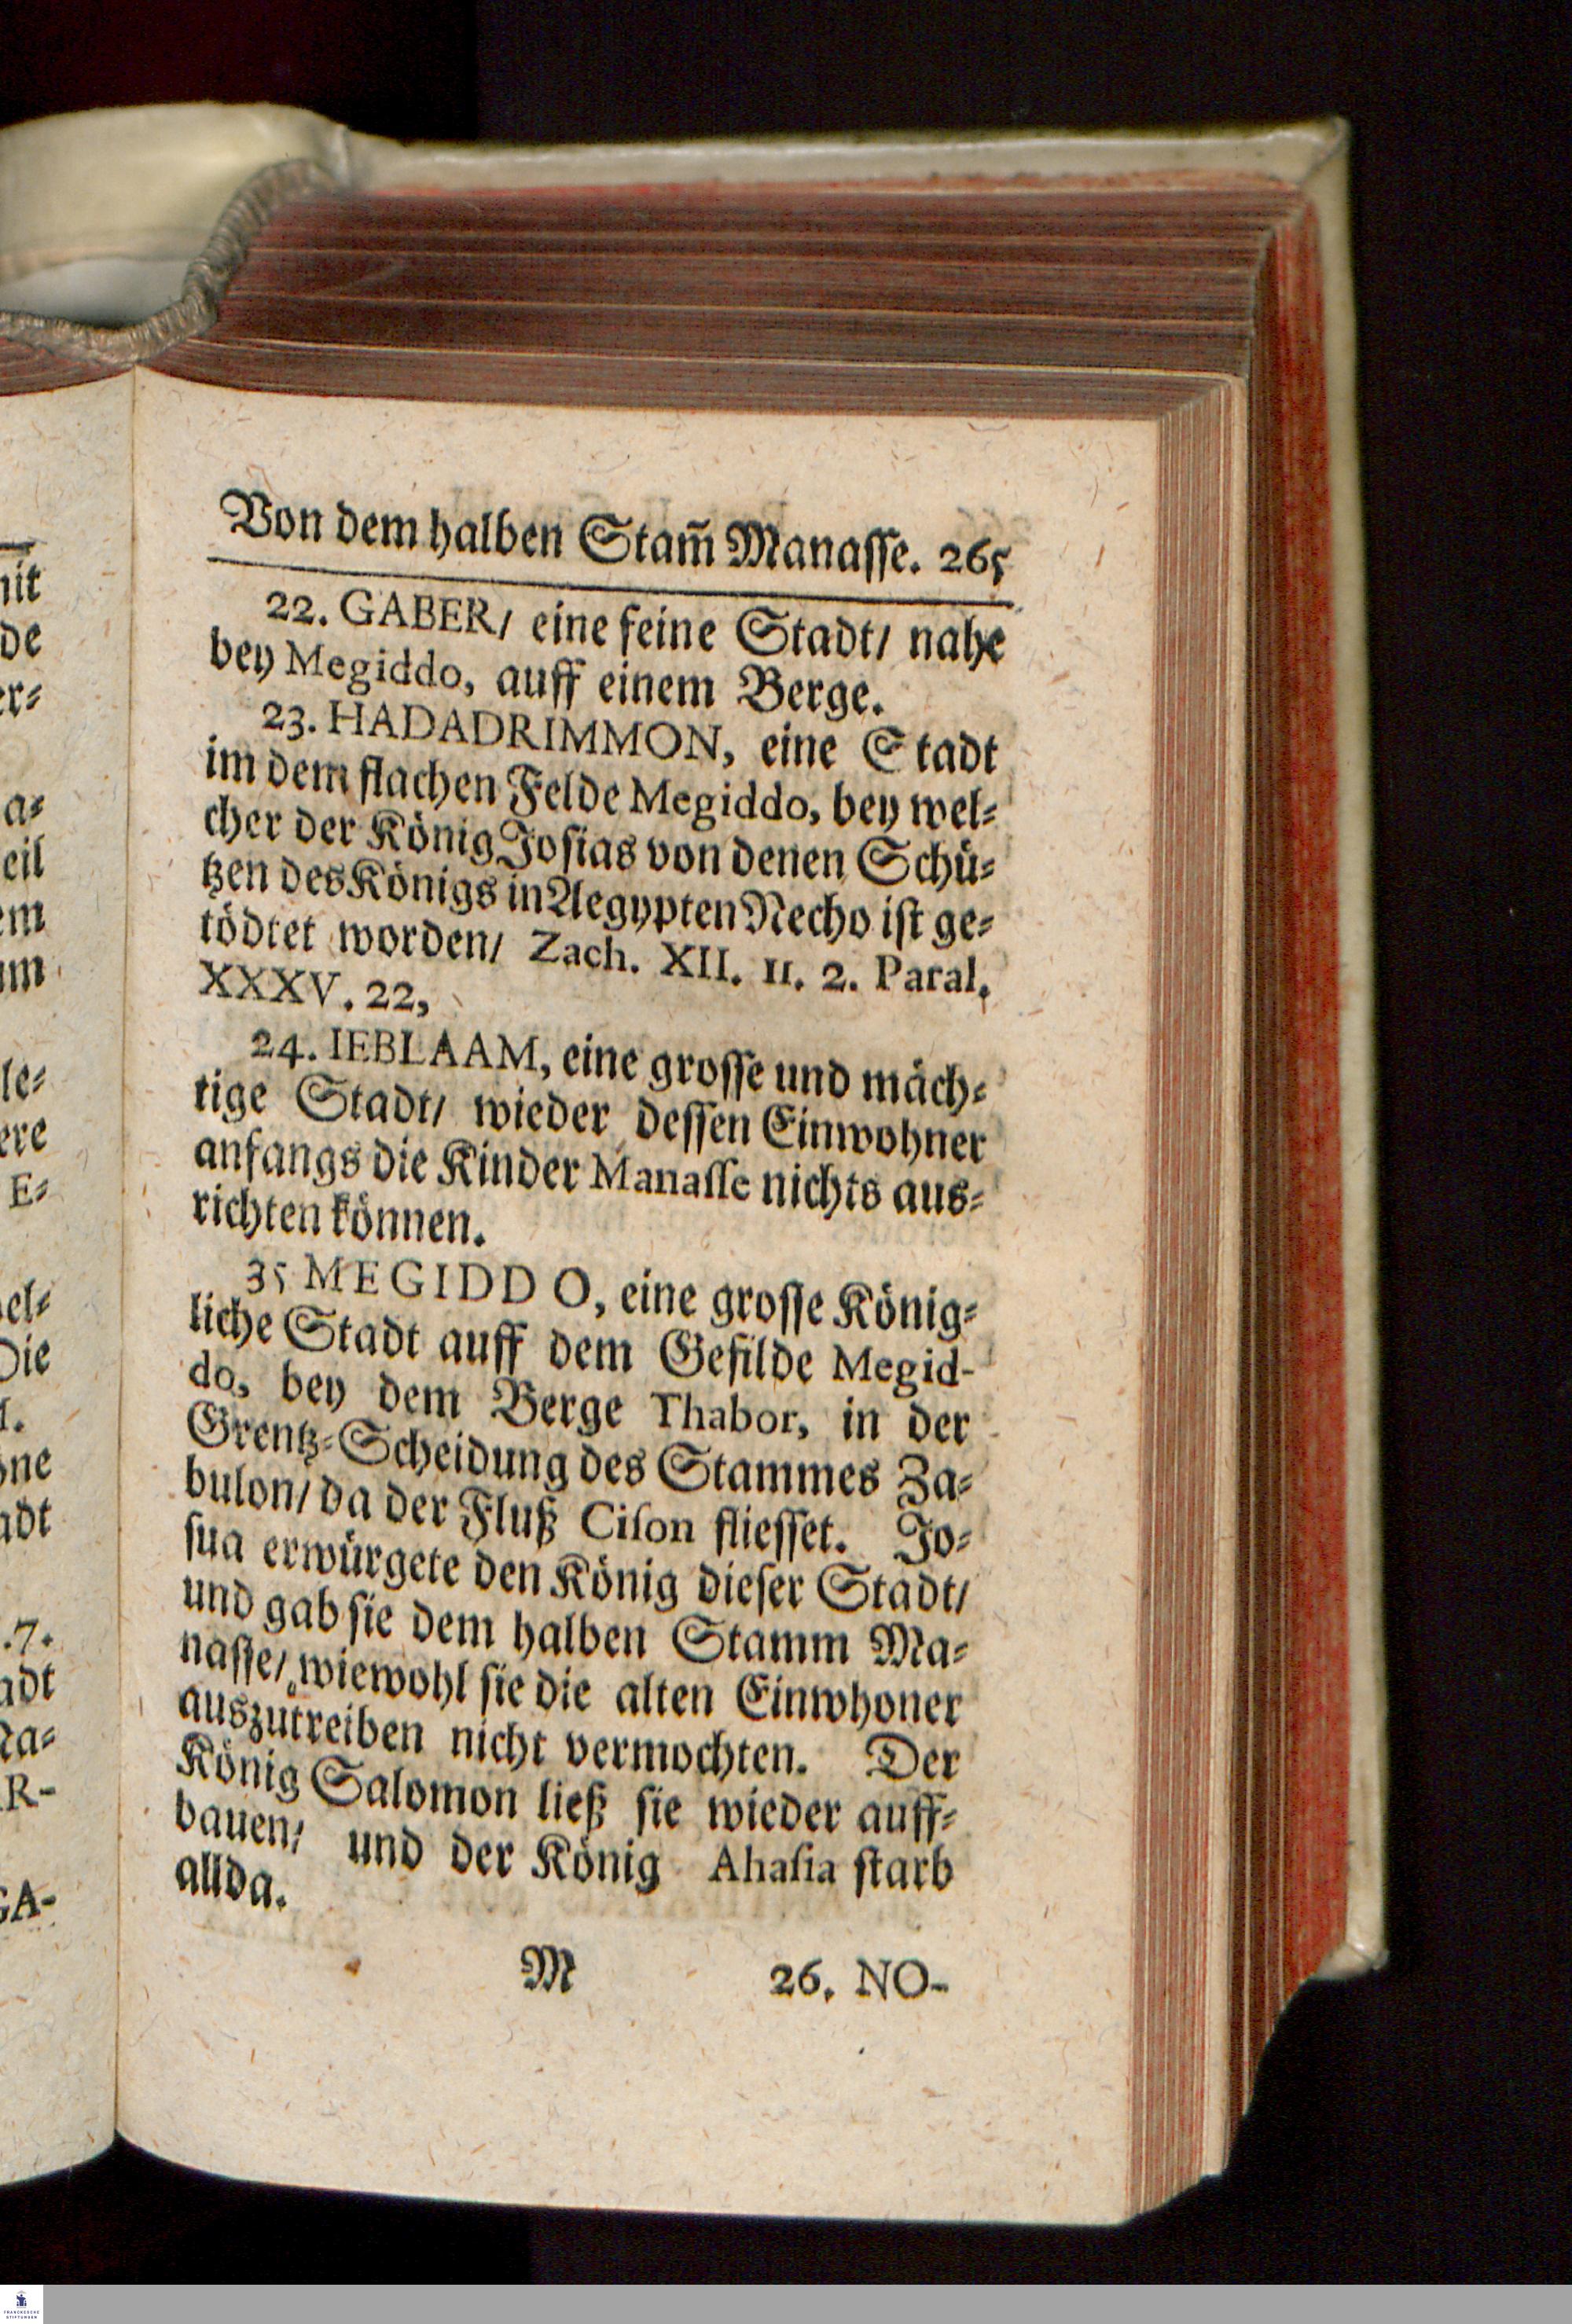 Von dem halben Stam̃ Manasse. 265
22. GABER/ eine feine Stadt/ nahe
bey Megiddo, auff einem Berge.
23. HADADRIMMON, eine Stadt
im dem flachen Felde Megiddo, bey wel⸗
cher der König Josias von denen Schü⸗
tzen des Königs in Aegypten Necho ist ge⸗
tödtet worden/ Zach. XII. 11. 2. Paral.
XXXV. 22,
24. IEBLAAM, eine grosse und mäch⸗
tige Stadt/ wieder dessen Einwohner
anfangs die Kinder Manasse nichts aus⸗
richten können.
35 MEGIDDO, eine grosse König⸗
liche Stadt auff dem Gefilde Megid-
do, bey dem Berge Thabor, in der
Grentz⸗Scheidung des Stammes Za⸗
bulon/ da der Fluß Cison fliesset. Jo⸗
sua erwürgete den König dieser Stadt/
und gab sie dem halben Stamm Ma⸗
nasse/ wiewohl sie die alten Einwhoner
auszutreiben nicht vermochten. Der
König Salomon ließ sie wieder auff⸗
bauen/ und der König Ahasia starb
allda.
M 26. NO-